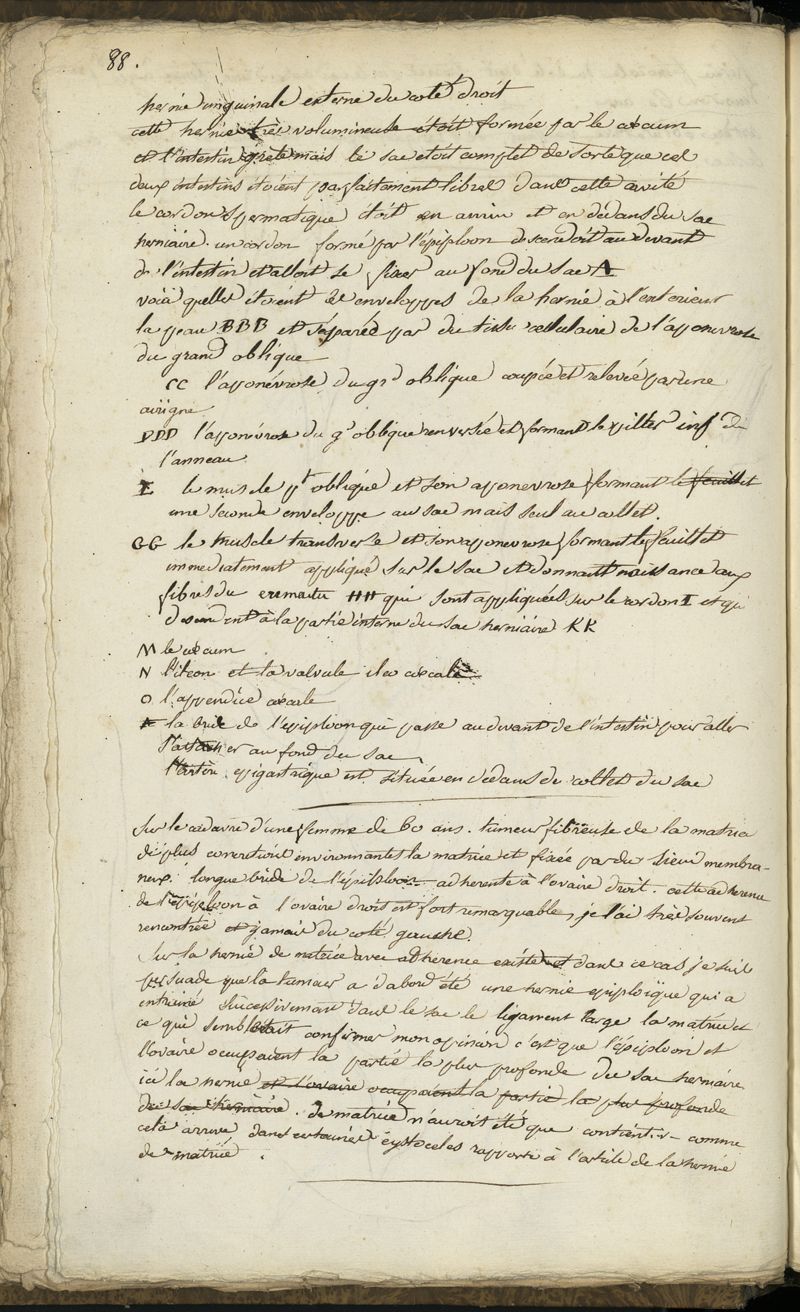 88.
hernie inguinale externe du coté droit
cette hernie très volumineuse étoit formée par le cœcum
et l'intestin grêle mais le sac etoit complet de sorte que ces
deux intestins étoient parfaitement libres dans cette cavité
le cordon spermatique étoit en arriere et en dedans du sac
herniaire. un cordon formé par l'épiploon descendoit au devant
de l'intestin et alloit se fixer au fond du sac A
voià quelles étoient les enveloppes de la hernie à l'exterieur
la peau BBB et séparée par du tissu cellulaire de l'aponevrose
du grand oblique
CC l'aponévrose du gd oblique coupée et relevée par une
airigne
DDD l'aponévrose du g oblique renversée et formant le pilier inf de
l'anneau
E le muscle pt oblique et son aponevrose formant le feuillet
une seconde enveloppe au sac mais seul au collet.
GG le muscle transverse et son aponevrose formant le feuillet
immediatement appliqué sur le sac et donnant naissance aux
fibres du cremaster HH qui sont appliquées sur le cordon I et qui
descendent à la partie interne du sac herniaire KK
M le cœcum
N l'ileon et la valvule ileo cœcale
O l'appendice cœcale
la bride de l'epiploon qui passe au devant de l'intestin pour aller
s'attacher au fond du sac
l'artère epigastrique est située en dedans du collet du sac
Sur le cadavre d'une femme de 60 ans. tumeur fibreuse de la matrice
de plus environnantes la matrice et fixée par des liens membra-
neux. longue bride de l'épiploon adherente à l'ovaire droit. cette adherence
de l'épiploon à l'ovaire droit est fort remarquable, je l'ai très souvent
rencontrée et jamais du coté gauche.
Sur la hernie de matrice avec adherence existe dans ce cas je suis
persuadé que la tumeur a d'abord été une hernie epiploïque qui a
entrainé successivement dans le sac le ligament large la matrice et
ce qui semblerait confirmer mon opinion c'est que l'épiploon et
l'ovaire occupaient la partie la plus profonde du sac herniaire
ici la hernie et l'ovaire occupaient la partie la plus profonde
du sac herniaire. de matrice n'auroit été que comme
cela arrive dans certaines cystoceles rapporté à l'article de la hernie
de matrice.